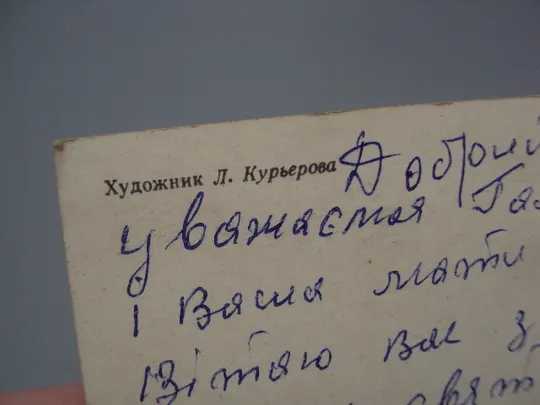 Художник Л. Курьерова
Добрий
уважаємая Га
і Ваша мати
Вітаю вас з
свят